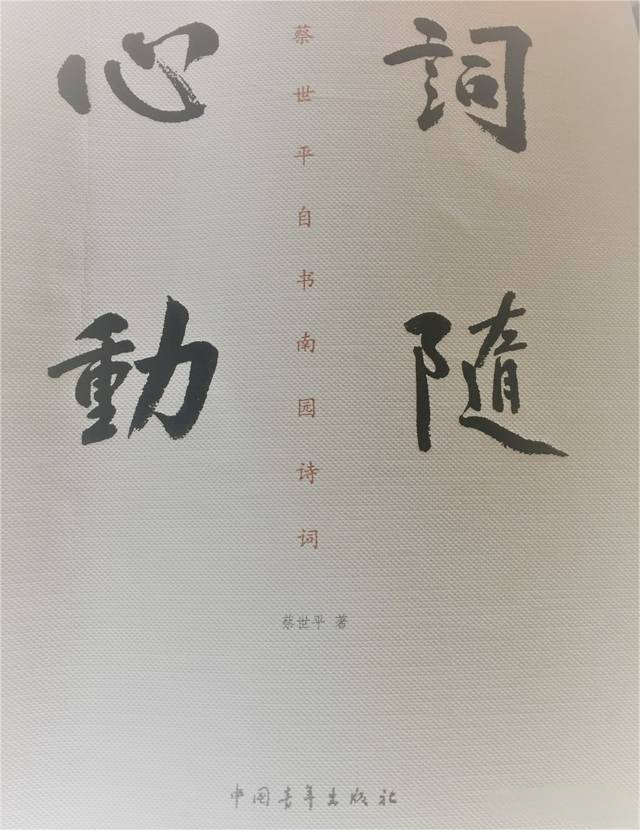 詞隨
心動
蔡世平自书南园诗词
蔡世平 著
中国青年出版社